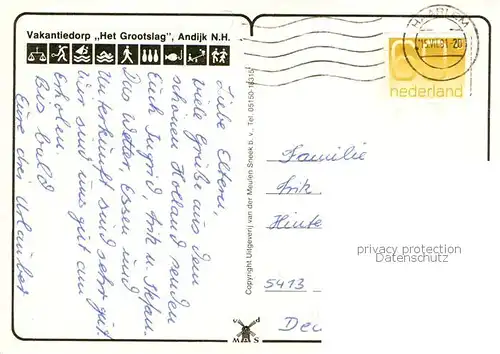 Vakantiedorp „Het Grootslag", Andijk N.H.
Liebe Eltern,
viele Grüße aus dem
schönen Holland senden
Euch Ingrid, Erik u. Stefan.
Das Wetter, Essen und
Unterkunft sind sehr gut
Wir sind uns gut am
Erholen.
Bis bald
Eure drei Urlauber
Copyright Uitgeverij van der Meulen Sneek b.v., Tel. 05150-14315
HAARLEM
15.VII.81-20
60
nederland
Familie
Erik
Hinte
5413
Deu
privacy protection
Datenschutz
v d
M
S W